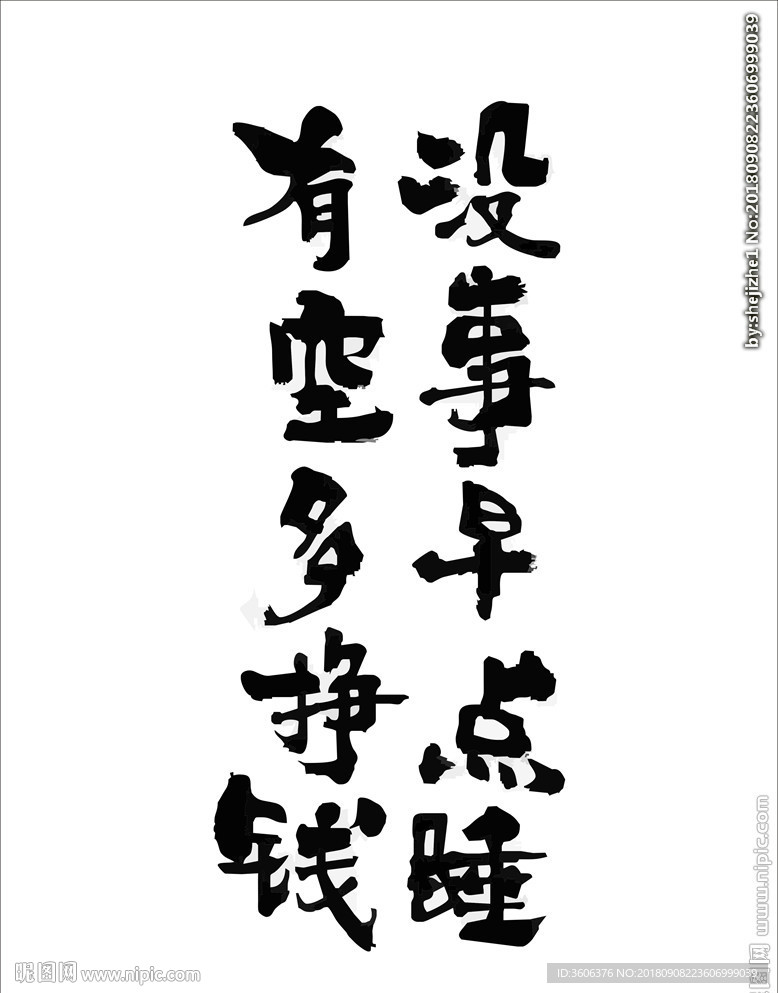 没事早点睡
有空多挣钱
by:shejizhe1 No:20180908223606999039
昵图网 www.nipic.com
www.nipic.com
ID:3606376 NO:20180908223606999039